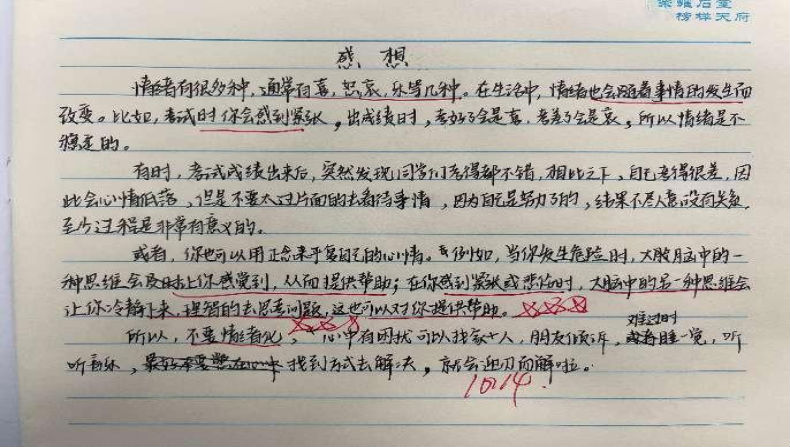 荣耀启堂
榜样天府
感想
情绪有很多种，通常有喜、怒、哀、乐等几种。在生活中，情绪也会随着事情的发生而
改变。比如，考试时你会感到紧张，出成绩时，考好了会是喜，考差了会是哀，所以情绪是不
稳定的。
有时，考试成绩出来后，突然发现同学们考得都不错，相比之下，自己考得很差，因
此会心情低落，但是不要太过片面的去看待事情，因为自己是努力了的，结果不尽人意没有关系，
至少过程是非常有意义的。
或者，你也可以用正念来平复自己的心情。例如，当你发生危险时，大脑中的一
种思维会及时让你感觉到，从而提供帮助；在你感到紧张或悲伤时，大脑中的另一种思维会
让你冷静下来，理智的去思考问题，这也可以对你提供帮助。
所以，不要情绪化，心中有困扰可以找家人，朋友倾诉，难过时睡一觉，听
听音乐，找到方式去解决，就会迎刃而解啦。
10.14